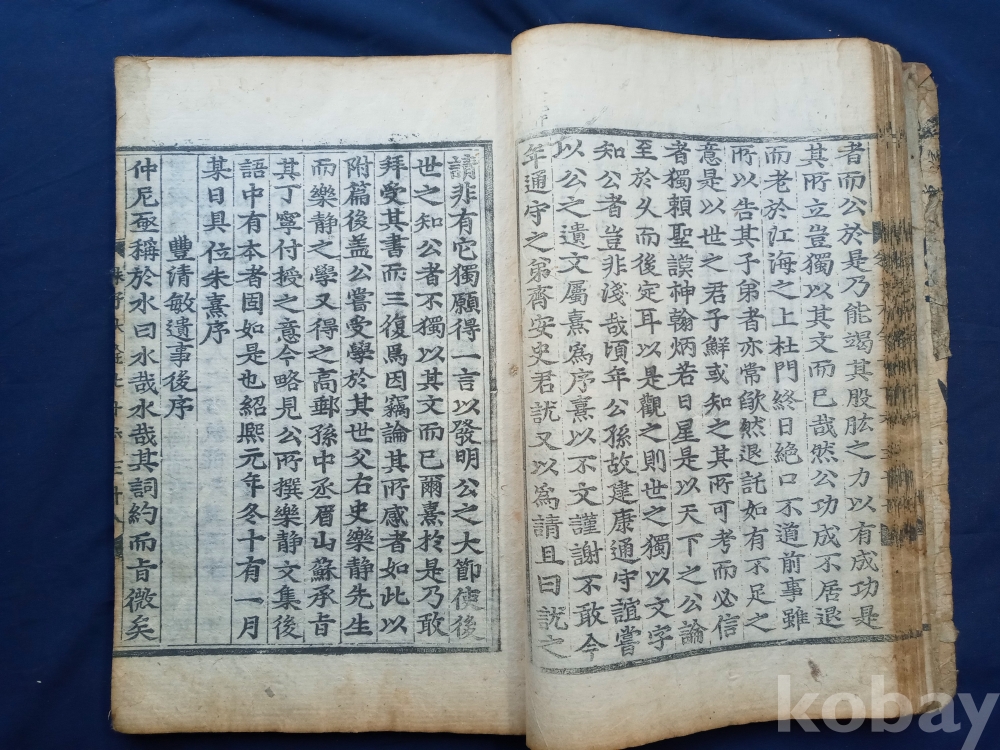 者而公於是乃能竭其股肱之力以有成功是
其所立豈獨以其文而已哉然公功成不居退
而老於江海之上杜門終日絕口不道前事雖
所以告其子弟者亦常欿然退託如有不足之
意是以世之君子鮮或知之其所可考而必信
者獨賴聖謨神翰炳若日星是以天下之公論
至於久而後定耳以是觀之則世之獨以文字
知公者豈非淺哉頃年公孫故建康通守誼嘗
以公之遺文屬熹爲序熹以不文謹謝不敢今
年通守之弟齊安史君訦又以爲請且曰訦之
請非有它獨願得一言以發明公之大節使後
世之知公者不獨以其文而已爾熹於是乃敢
拜受其書而三復焉因竊論其所感者如此以
附篇後盖公嘗受學於其世父右史樂靜先生
而樂靜之學又得之高郵孫中丞眉山蘇承旨
其丁寧付授之意今略見公所撰樂靜文集後
語中有本者固如是也紹熙元年冬十有一月
某日具位朱熹序
豐清敏遺事後序
仲尼亟稱於水曰水哉水哉其詞約而旨微矣
kobay